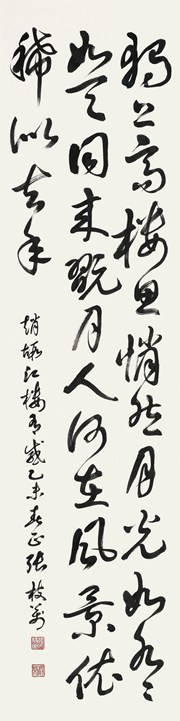 獨上高樓思悄然月光如水々
如天同來翫月人何在風景依
稀似去年
趙嘏江樓有感乙未春正張枝